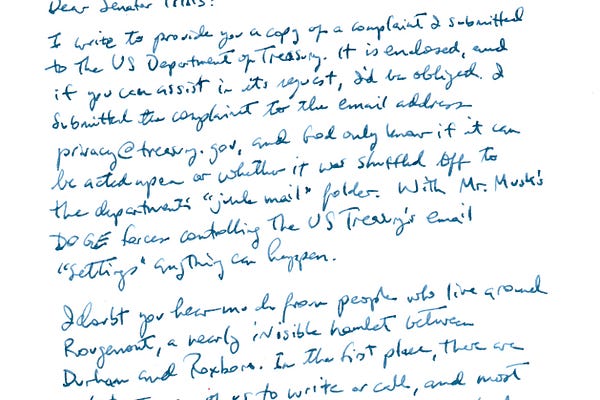 Dear Senator Tillis:
I write to provide you a copy of a complaint I submitted
to the US Department of Treasury. It is enclosed, and
if you can assist in its request, I'd be obliged. I
submitted the complaint to the email address
privacy@treasury.gov, and God only know if it can
be acted upon or whether it was shuffled off to
the department's "junk mail" folder. With Mr. Musk's
DOGE forces controlling the US Treasury's email
"settings" anything can happen.
I doubt you hear much from people who live around
Rougemont, a nearly invisible hamlet between
Durham and Roxboro. In the first place, there are
us to write or call, and most